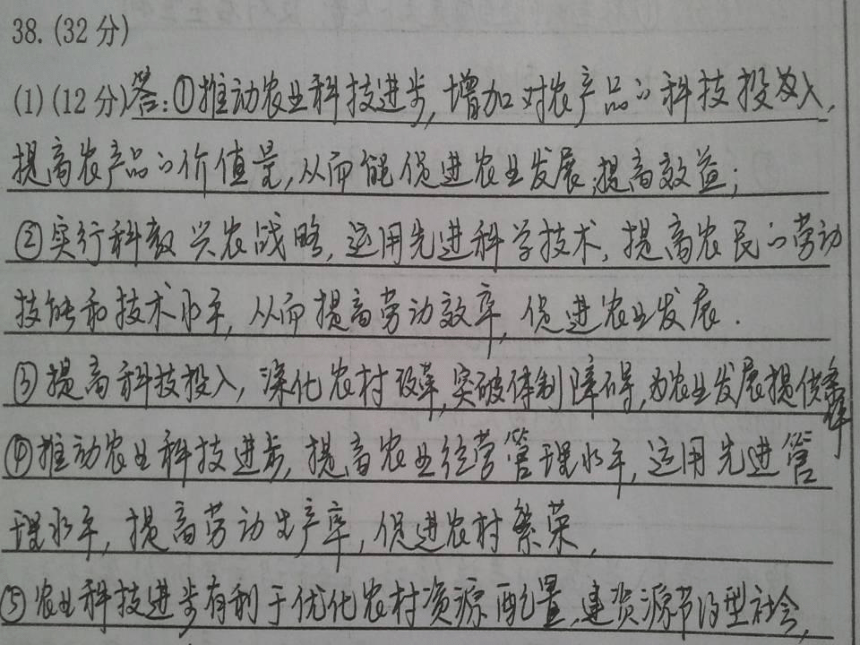 38.(32分)
(1)(12分)答:①推动农业科技进步,增加对农产品的科技投入,
提高农产品的价值量,从而能促进农业发展,提高效益;
②实行科教兴农战略,运用先进科学技术,提高农民的劳动
技能和技术水平,从而提高劳动效率,促进农业发展.
③提高科技投入,深化农村改革,突破体制障碍,为农业发展提供条件
④推动农业科技进步,提高农业经营管理水平,运用先进管
理水平,提高劳动生产率,促进农村繁荣,
⑤农业科技进步有利于优化农村资源配置,建资源节约型社会,